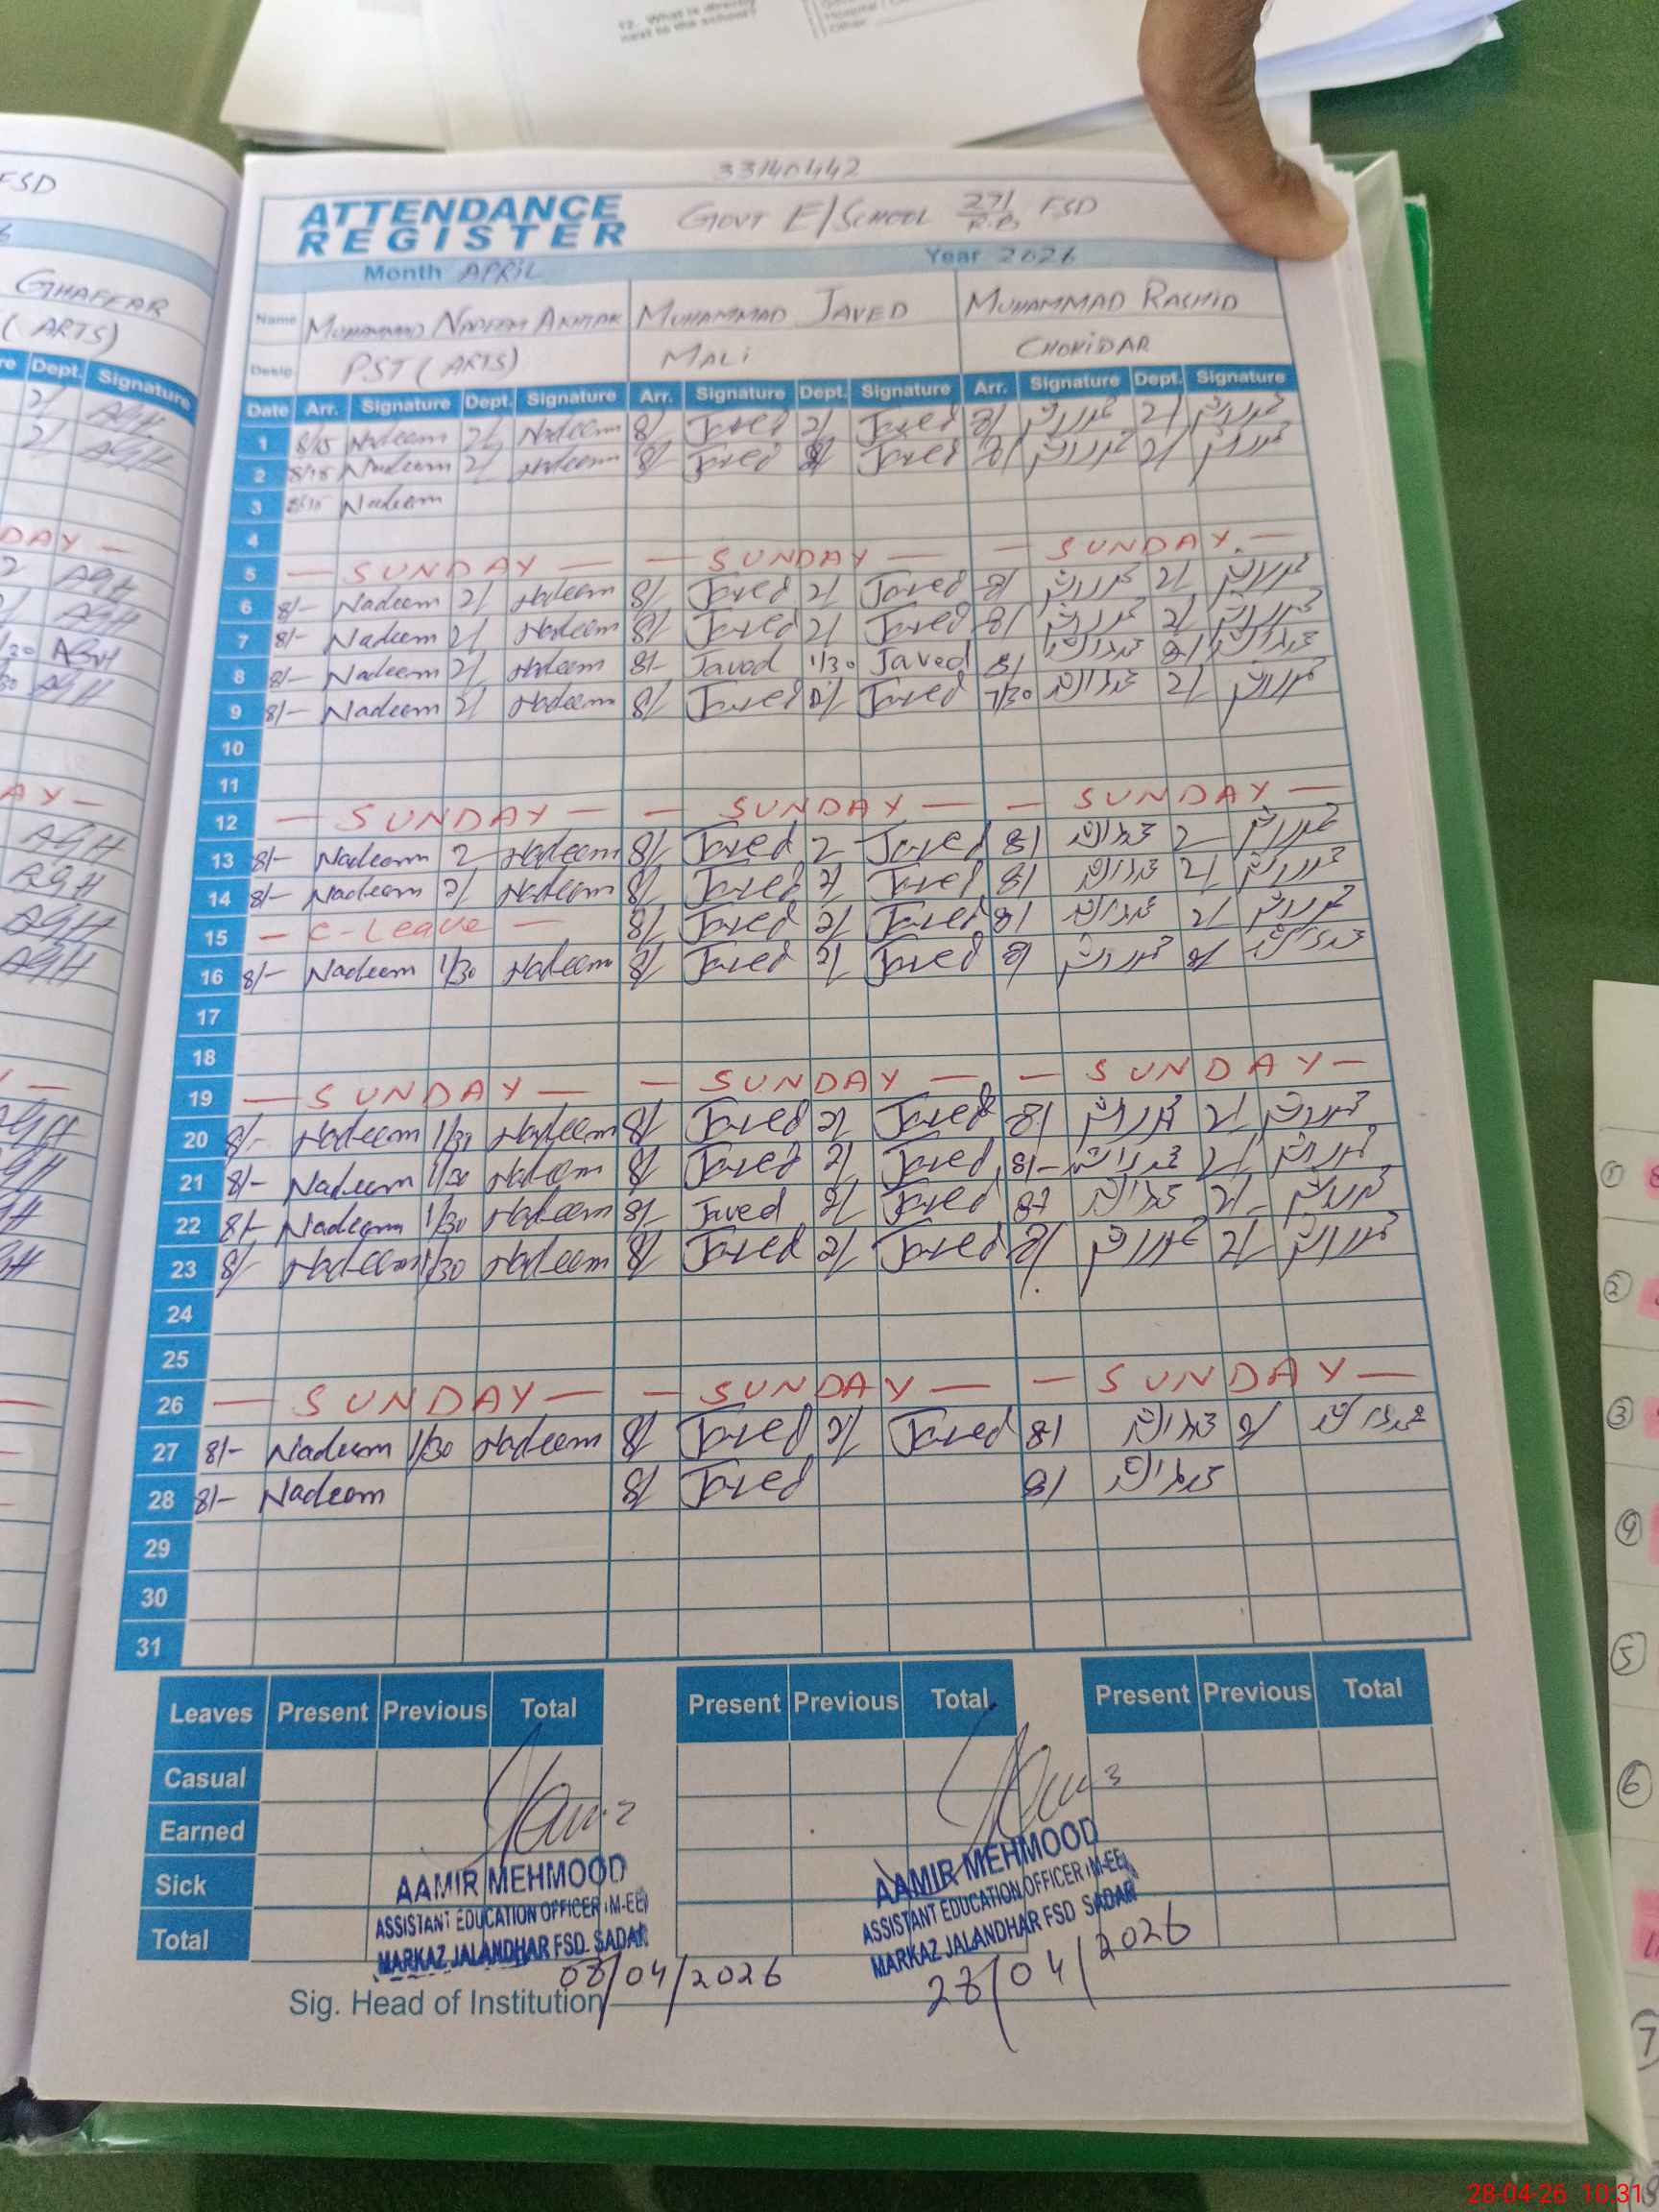 12. What is directly
next to the school?
FSD
GHAFFAR
(ARTS)
Dept. Signature
2/ AGH
2/ AGH
33140442
ATTENDANCE
REGISTER
GOVT E/SCHOOL 271/R.B FSD
Month APRIL Year 2026
Name MUHAMMAD NADEEM AKHTAR MUHAMMAD JAVED MUHAMMAD RASHID
Desig. PST (ARTS) MALI CHOKIDAR
Date Arr. Signature Dept. Signature Arr. Signature Dept. Signature Arr. Signature Dept. Signature
1 8/15 Nadeem 2/ Nadeem 8/ Javed 2/ Javed 8/ 2/
2 8/15 Nadeem 2/ Nadeem 8/ Javed Javed 8/ 2/
3 Nadeem
4
5 — SUNDAY — — SUNDAY — — SUNDAY —
6 8/- Nadeem 2/ Nadeem 8/ Javed 2/ Javed 8/ 2/
7 8/- Nadeem 2/ Nadeem 8/ Javed 2/ Javed 8/ 2/
8 8/- Nadeem 2/ Nadeem 8/- Javed 1/30 Javed 8/
9 8/- Nadeem 2/ Nadeem 8/ Javed Javed 7/30 2/
10
11
12 — SUNDAY — — SUNDAY — — SUNDAY —
13 8/- Nadeem 2 Nadeem 8/ Javed 2 Javed 8/ 2
14 8/- Nadeem 2/ Nadeem 8/ Javed 2/ Javed 8/ 2/
15 — C-Leave — 8/ Javed 2/ Javed 8/ 2/
16 8/- Nadeem 1/30 Nadeem 8/ Javed 2/ Javed 8/
17
18
19 — SUNDAY — — SUNDAY — — SUNDAY —
20 8/- Nadeem 1/30 Nadeem 8/ Javed 2/ Javed 8/ 2/
21 8/- Nadeem 1/30 Nadeem 8/ Javed 2/ Javed 8/- 2/
22 8/- Nadeem 1/30 Nadeem 8/- Javed 2/ Javed 2/-
23 8/- Nadeem 1/30 Nadeem 8/ Javed 2/ Javed 8/ 2/
24
25
26 — SUNDAY — — SUNDAY — — SUNDAY —
27 8/- Nadeem 1/30 Nadeem 8/ Javed 2/ Javed 8/
28 8/- Nadeem 8/ Javed 8/
29
30
31
Leaves Present Previous Total Present Previous Total Present Previous Total
Casual
Earned
Sick
Total
AAMIR MEHMOOD
ASSISTANT EDUCATION OFFICER (M-EE)
MARKAZ JALANDHAR FSD. SADAR
08/04/2026
AAMIR MEHMOOD
ASSISTANT EDUCATION OFFICER (M-EE)
MARKAZ JALANDHAR FSD SADAR
28/04/2026
Sig. Head of Institution
28-04-26 10:31